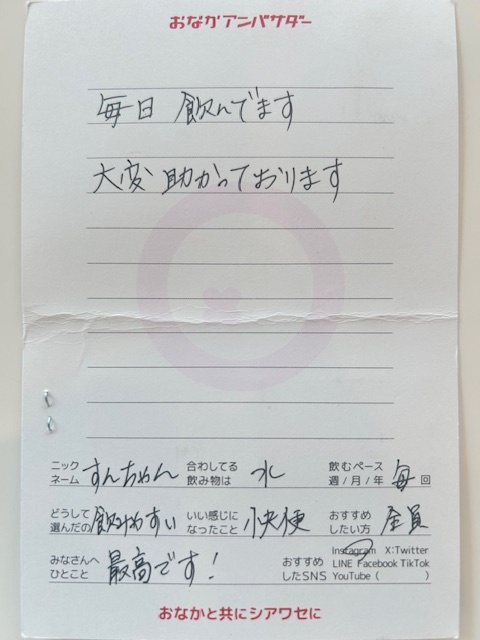 おなかアンバサダー
毎日 飲んでます
大変 助かっております
ニックネーム すんちゃん 合わしてる飲み物は 水 飲むペース 週/月/年 毎 回
どうして選んだの 飲みやすい いい感じになったこと 快便 おすすめしたい方 全員
みなさんへひとこと 最高です! おすすめしたSNS Instagram X:Twitter LINE Facebook TikTok YouTube ( )
おなかと共にシアワセに